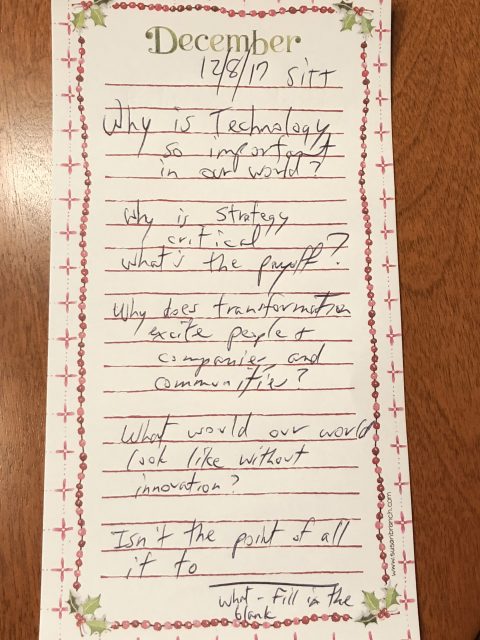 December
12/8/17 SITT
Why is Technology
so important
in our world?
Why is strategy
critical
what's the payoff?
Why does transformation
excite people +
companies and
communities?
What would our world
look like without
innovation?
Isn't the point of all
it to
what - fill in the
blank
www.susanbranch.com